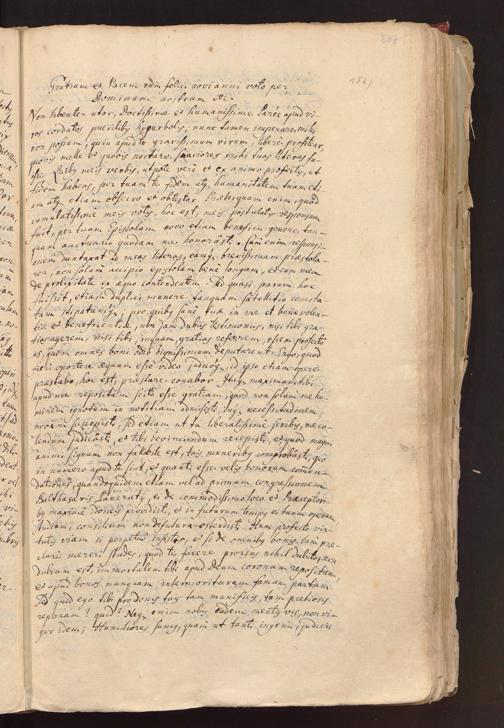 152)
Gratiam et Pacem cum felicis novi anni voto per
Dominum nostrum etc.
Non libenter utor, Doctissime et humanissime Parée apud vi-
ros cordatos puerilibus hyperbolis, nunc tamen imperare mihi
non possum, quin apud te gravissimum virum, liberè profitear,
quovis melle et quovis nectare suaviores mihi tuas literas fu-
isse. Quibus meis verbis, utpote verè et ex animo profectis, ut
fidem habeas, per tuam te fidem atque humanitatem tuam eti-
am atque etiam obsecro et obtestor. Praeterquam enim, quod
cumulatissime meis votis, hoc est, meis postulatis responsum
fuit, per tuam Epistolam novo etiam beneficii genere tan-
quam auctuario quodam me honorasti. Cum enim responsi-
onem duntaxat ad meas literas, eamque brevissimam praestola-
rer, non solum accipio epistolam bene longam, et cum mea
de prolixitate ex aequo contendentem: sed quasi parum hoc
fuisset, etiam duplici munere tanquam satellitio comita-
tam stipatamque, pro quibus sanè tuae in me et benevolen-
tiae et beneficentiae, non jam dubiis testimoniis, nisi tibi gra-
tias agerem, nisi tibi, inquam, gratias referrem, is essem profecto
is, quem omnes boni odio dignissimum deputarent. Ergo, quod
tieri oportere aequum esse video
praestabo, hoc est, praestare conabor. Atque maximam tibi
apud me repositam scito esse gratiam, quod non solum me ho-
minem ignotum in notitiam admisisti, inque necessitudinem
novam suscepisti, sed etiam ut tu liberalissime scribis, me co-
lendum judicasti, et tibi devinciendum recepisti, et quod magni
animi signum non fallibile est, tois muneribus comprobasti, quo
in numero apud te sint, et quanti esse velis bonorum commen-
dationes, quandoquidem etiam vel ad primam congressionem
Balthasaris
by maximè idoneis providisti, et in futurum tempus etiam operam
studium, consilium non defuturum ostendisti. Hanc profecto vir-
tutis viam si perpetuo insistes, et si de omnibus bonis tam prae-
clarè mereri studes, quod te facere prorsus nihil dubito, non
dubium est, immortalem tibi apud Deum coronam repositam,
et apud bonos nunquam intermorituram famam partam.
Sed quid ego tibi pro donis tuis tam munificis, tam pretiosis
reponam? quid? Neque enim nobis eadem mentis vis, non vi-
gor idem; Humiliores sumus, quam ut tanti ingenii, judicii